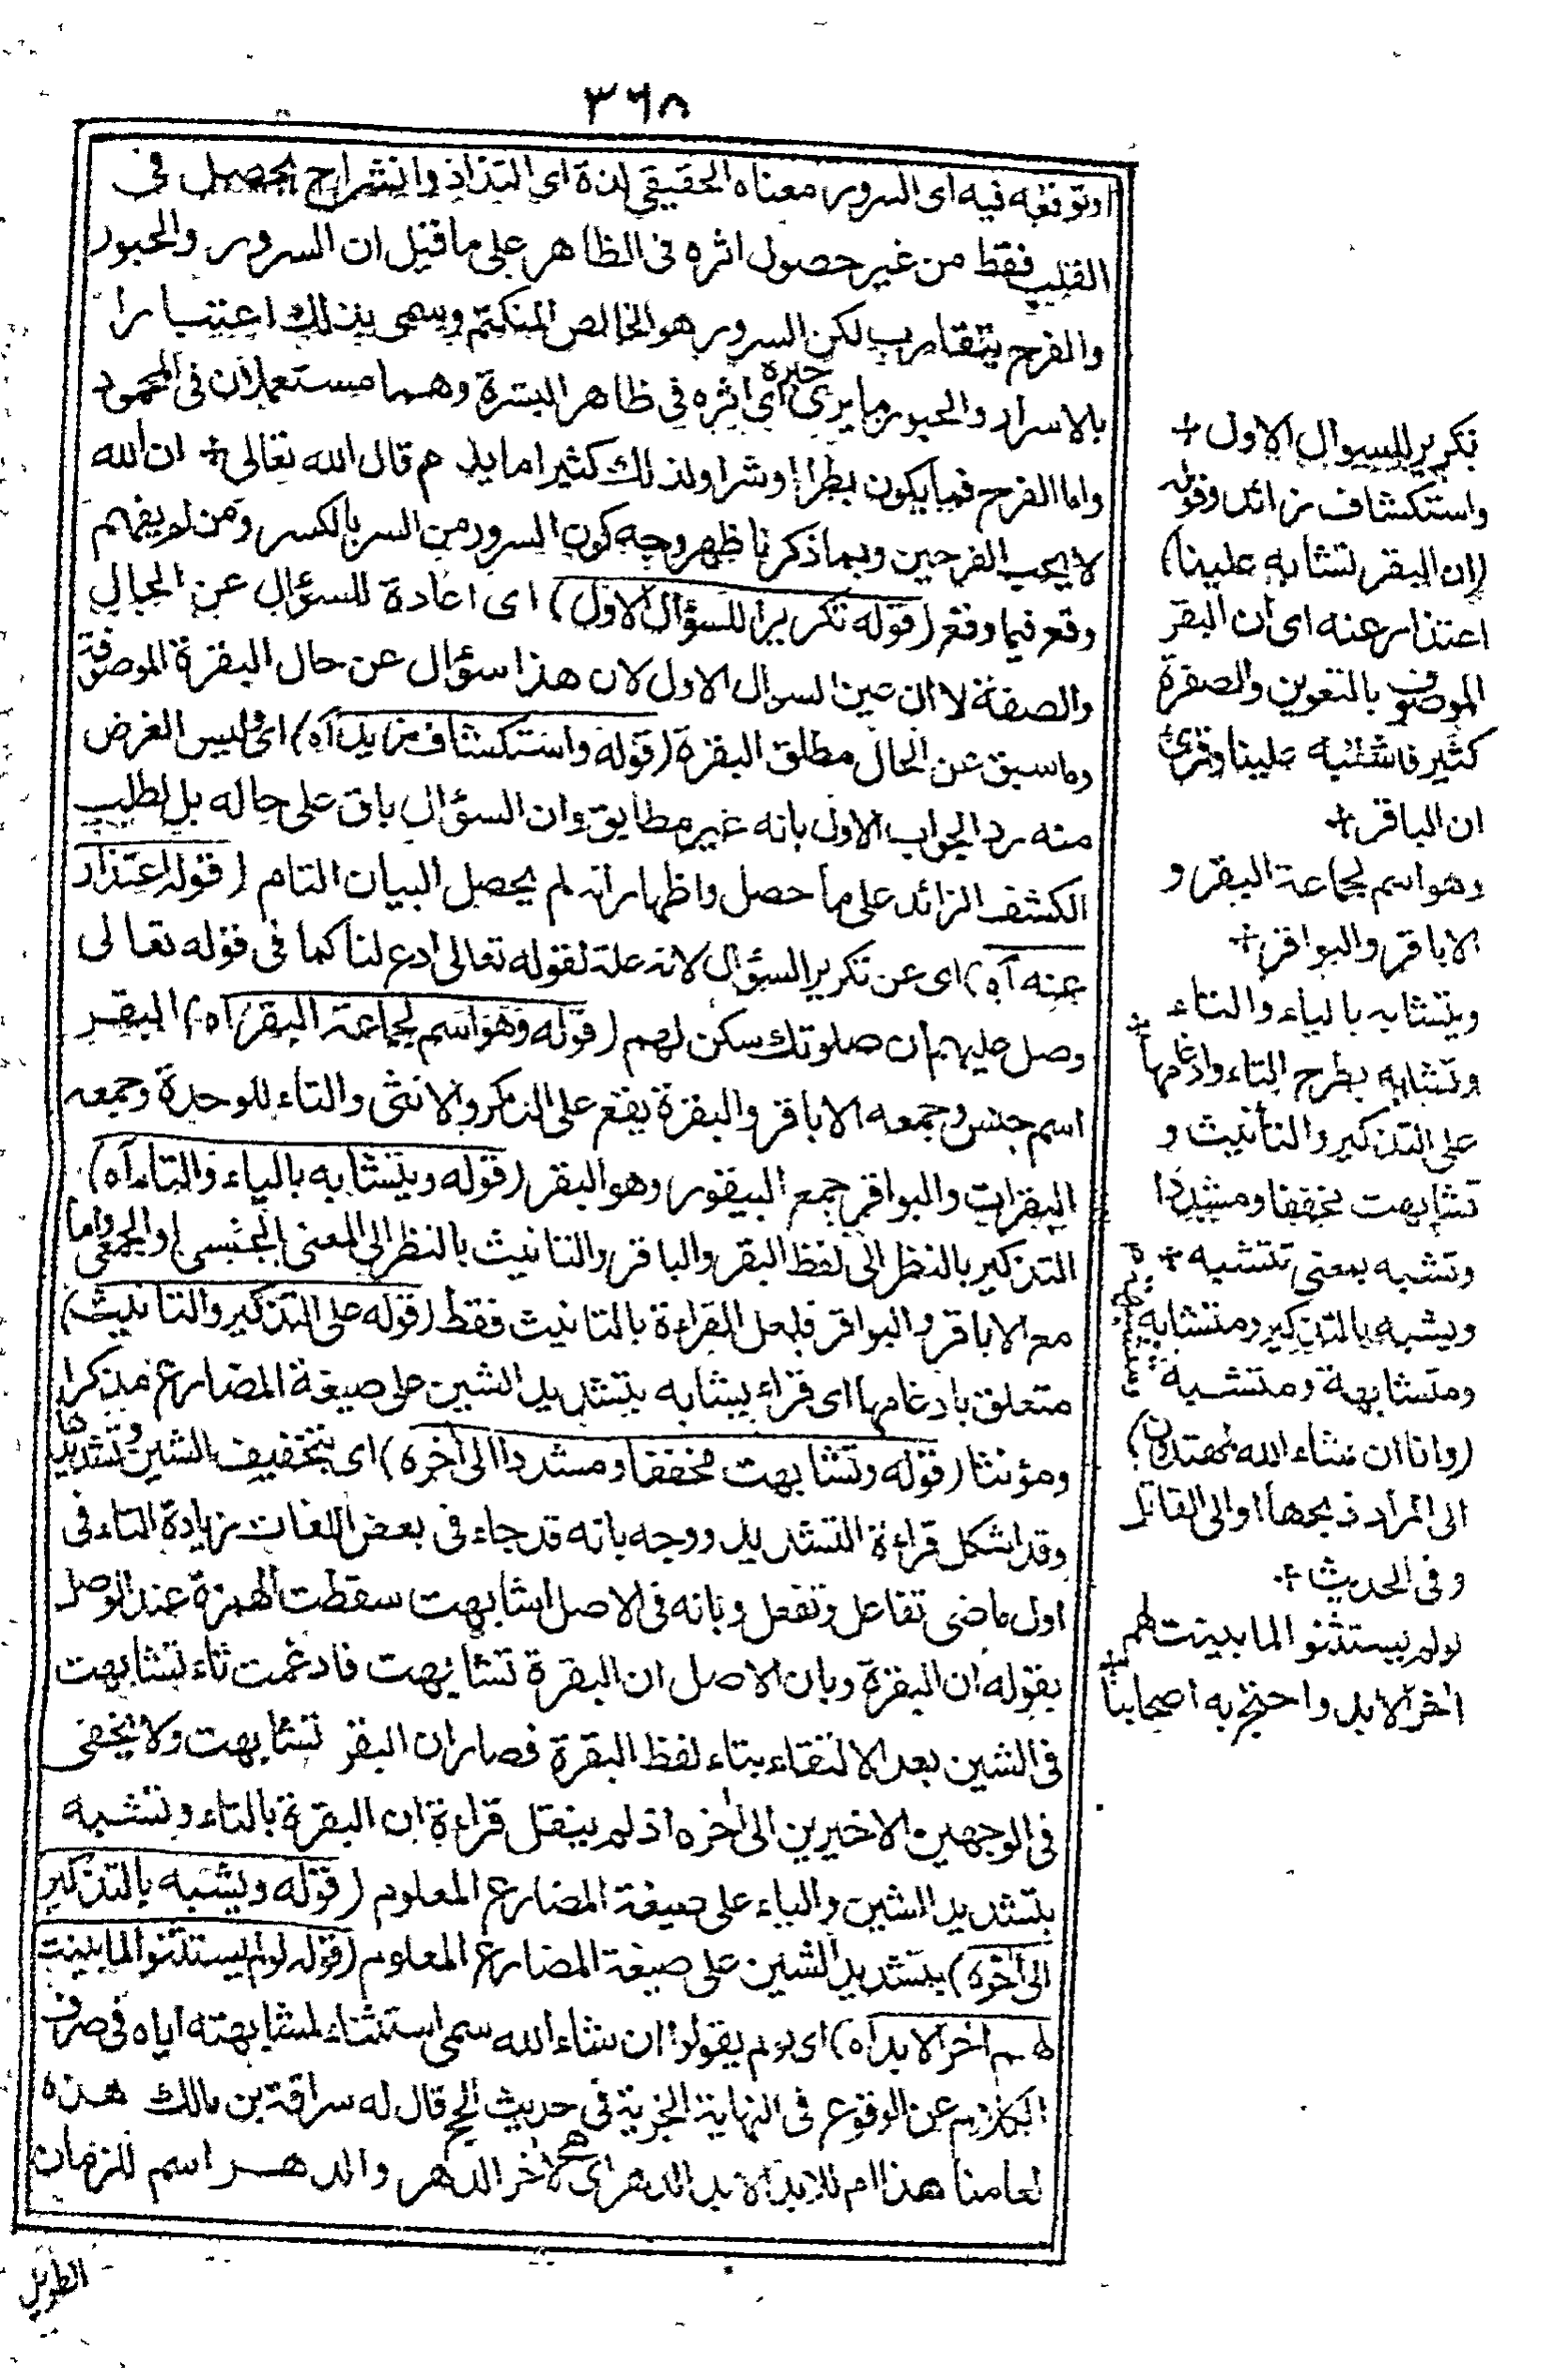 ٣٦٨
او توقعه فيه اى السرور معناه الحقيقي لذة اى التذاذ وانشراح يحصل فى
القلب فقط من غير حصول اثره فى الظاهر على ما قيل ان السرور والحبور
والفرح يتقارب لكن السرور هو الخالص المنكتم وسمى بذلك اعتبارا
بالاسرار والحبور ما يرى حبره اى اثره فى ظاهر البشرة وهما مستعملان فى المحمود
واما الفرح فما يكون بطرا وشرا ولذلك كثيرا ما يذم قال الله تعالى ان الله
لا يحب الفرحين وبما ذكرنا ظهر وجه كون السرور من السر بالكسر ومن لم يفهم
وقع فيما وقع (قوله تكريرا للسؤال الاول) اى اعادة للسؤال عن الحال
والصفة لا ان عين السوال الاول لان هذا سؤال عن حال البقرة الموصوفة
وما سبق عن الحال مطلق البقرة (قوله واستكشاف مزيد آه) اى وليس الغرض
منه رد الجواب الاول بانه غير مطابق وان السؤال باق على حاله بل لطلب
الكشف الزائد على ما حصل واظهار انه لم يحصل البيان التام (قوله اعتذار
عنه آه) اى عن تكرير السؤال لانه علة لقوله تعالى ادع لنا كما فى قوله تعالى
وصل عليهم ان صلوتك سكن لهم (قوله وهو اسم لجماعة البقر آه) البقر
اسم جنس وجمعه الاباقر والبقرة يقع على الذكر والانثى والتاء للوحدة وجمعه
البقرات والبواقر جمع البيقور وهو البقر (قوله ويتشابه بالياء والتاء آه)
التذكير بالنظر الى لفظ البقر والباقر والتانيث بالنظر الى المعنى الجنسى او الجمعى واما
مع الاباقر والبواقر فلعل القراءة بالتانيث فقط (قوله على التذكير والتانيث)
متعلق بادغامها اى قراء يشابه بتشديد الشين على صيغة المضارع مذكرا
ومؤنثا (قوله وتشابهت مخففا ومشددا الى آخره) اى بتخفيف الشين وتشديدها
وقد اشكل قراءة التشديد ووجه بانه قد جاء فى بعض اللغات زيادة التاء فى
اول ماضى تفاعل وتفعل وبانه فى الاصل اشابهت سقطت الهمزة عند الوصل
بقوله ان البقرة وبان الاصل ان البقرة تشابهت فادغمت تاء تشابهت
فى الشين بعد الالتقاء بتاء لفظ البقرة فصار ان البقر تشابهت ولا يخفى
فى الوجهين الاخيرين الى آخره اذ لم ينقل قراءة ان البقرة بالتاء وتشبه
بتشديد الشين والباء على صيغة المضارع المعلوم (قوله ويشبه بالتذكير
الى آخره) بتشديد الشين على صيغة المضارع المعلوم (قوله لو لم يستثنوا لما بينت
لهم آخر الابد آه) اى لو لم يقولوا ان شاء الله سمى استثناء لمشابهته اياه فى صرف
الكلام عن الوقوع فى النهاية الجزرية فى حديث الحج قال له سراقة بن مالك هذه
لعامنا هذا ام للابد الابد الدهر اى هى لآخر الدهر والدهر اسم للزمان
الطويل
تكرير للسوال الاول
واستكشاف زائد وقوله
(ان البقر تشابه علينا)
اعتذار عنه اى ان البقر
الموصوف بالتعوين والصفرة
كثير فاشتبه علينا وقرئ
ان الباقر
وهو اسم لجماعة البقر و
الاباقر والبواقر
ويتشابه بالياء والتاء
وتشابه بطرح التاء وادغامها
على التذكير والتأنيث و
تشابهت مخففا ومشددا
وتشبه بمعنى تتشبه
ويشبه بالتذكير ومتشابه
ومتشابهة ومتشبه
(وانا ان شاء الله لمهتدون)
الى المراد ذبحها او الى القاتل
وفى الحديث
لو لم يستثنوا لما بينت لهم
آخر الابد واحتج به اصحابنا